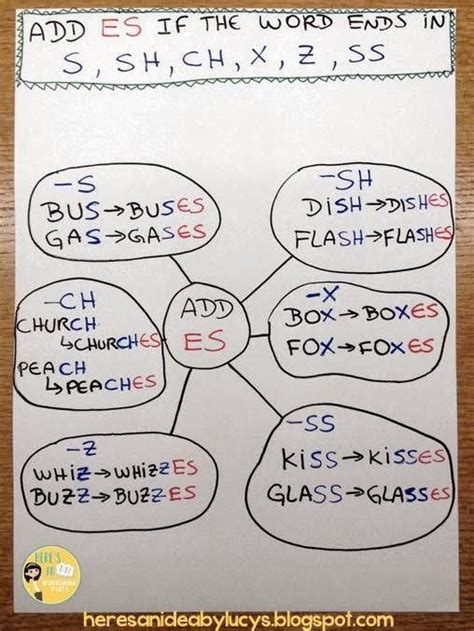 ADD ES IF THE WORD ENDS IN
S, SH, CH, X, Z, SS
-S
BUS→BUSES
GAS→GASES
-SH
DISH→DISHES
FLASH→FLASHES
-CH
CHURCH
↳CHURCHES
PEACH
↳PEACHES
ADD
ES
-X
BOX→BOXES
FOX→FOXES
-Z
WHIZ→WHIZZES
BUZZ→BUZZES
-SS
KISS→KISSES
GLASS→GLASSES
HERE'S
AN
heresanideabylucys.blogspot.com